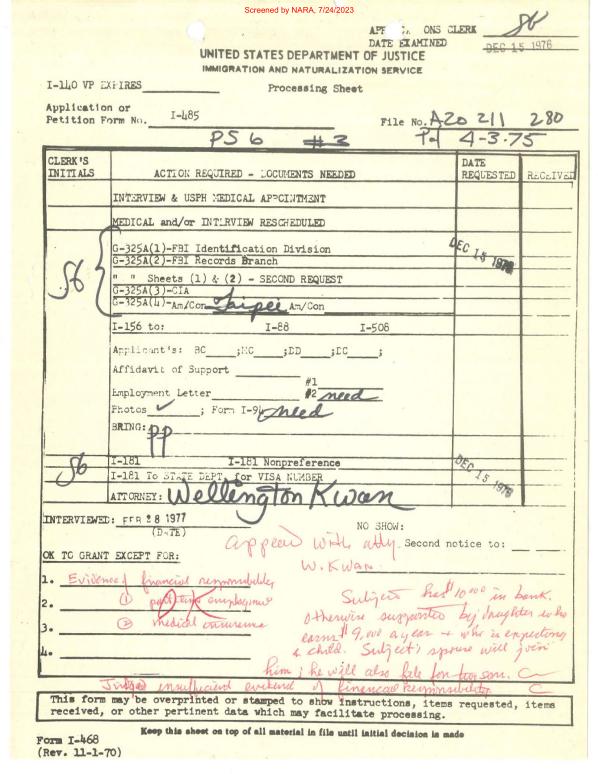 Screened by NARA, 7/24/2023
APPLICATIONS CLERK S6
DATE EXAMINED DEC 15 1976
UNITED STATES DEPARTMENT OF JUSTICE
IMMIGRATION AND NATURALIZATION SERVICE
I-140 VP EXPIRES
Processing Sheet
Application or
Petition Form No. I-485
File No. A20 211 280
PS6 #3 4-3-75
CLERK'S INITIALS
ACTION REQUIRED - DOCUMENTS NEEDED
DATE REQUESTED
RECEIVED
INTERVIEW & USPH MEDICAL APPOINTMENT
MEDICAL and/or INTERVIEW RESCHEDULED
G-325A(1)-FBI Identification Division
DEC 15 1976
G-325A(2)-FBI Records Branch
" " Sheets (1) & (2) - SECOND REQUEST
S6
G-325A(3)-CIA
G-325A(4)-Am/Con Taipei Am/Con
I-156 to: I-88 I-508
Applicant's: BC ;MC ;DD ;DC ;
Affidavit of Support
#1
Employment Letter #2 need
Photos ✓ ; Form I-94 need
BRING: pp
S6
I-181 I-181 Nonpreference
DEC 15 1976
I-181 To STATE DEPT. for VISA NUMBER
ATTORNEY: Wellington Kwan
INTERVIEWED: FEB 28 1977
(DATE)
NO SHOW:
appeared with atty. W. Kwan
Second notice to:
OK TO GRANT EXCEPT FOR:
1. Evidence of financial responsibility
2. ① part time employment
3. ② medical insurance
4.
Subject has $10,000 in bank.
Otherwise supported by daughter who
earns $9,000 a year & who is expecting
a child. Subject's spouse will join
him; he will also file for son.
Judged insufficient evidence of financial responsibility.
This form may be overprinted or stamped to show instructions, items requested, items
received, or other pertinent data which may facilitate processing.
Keep this sheet on top of all material in file until initial decision is made
Form I-468
(Rev. 11-1-70)